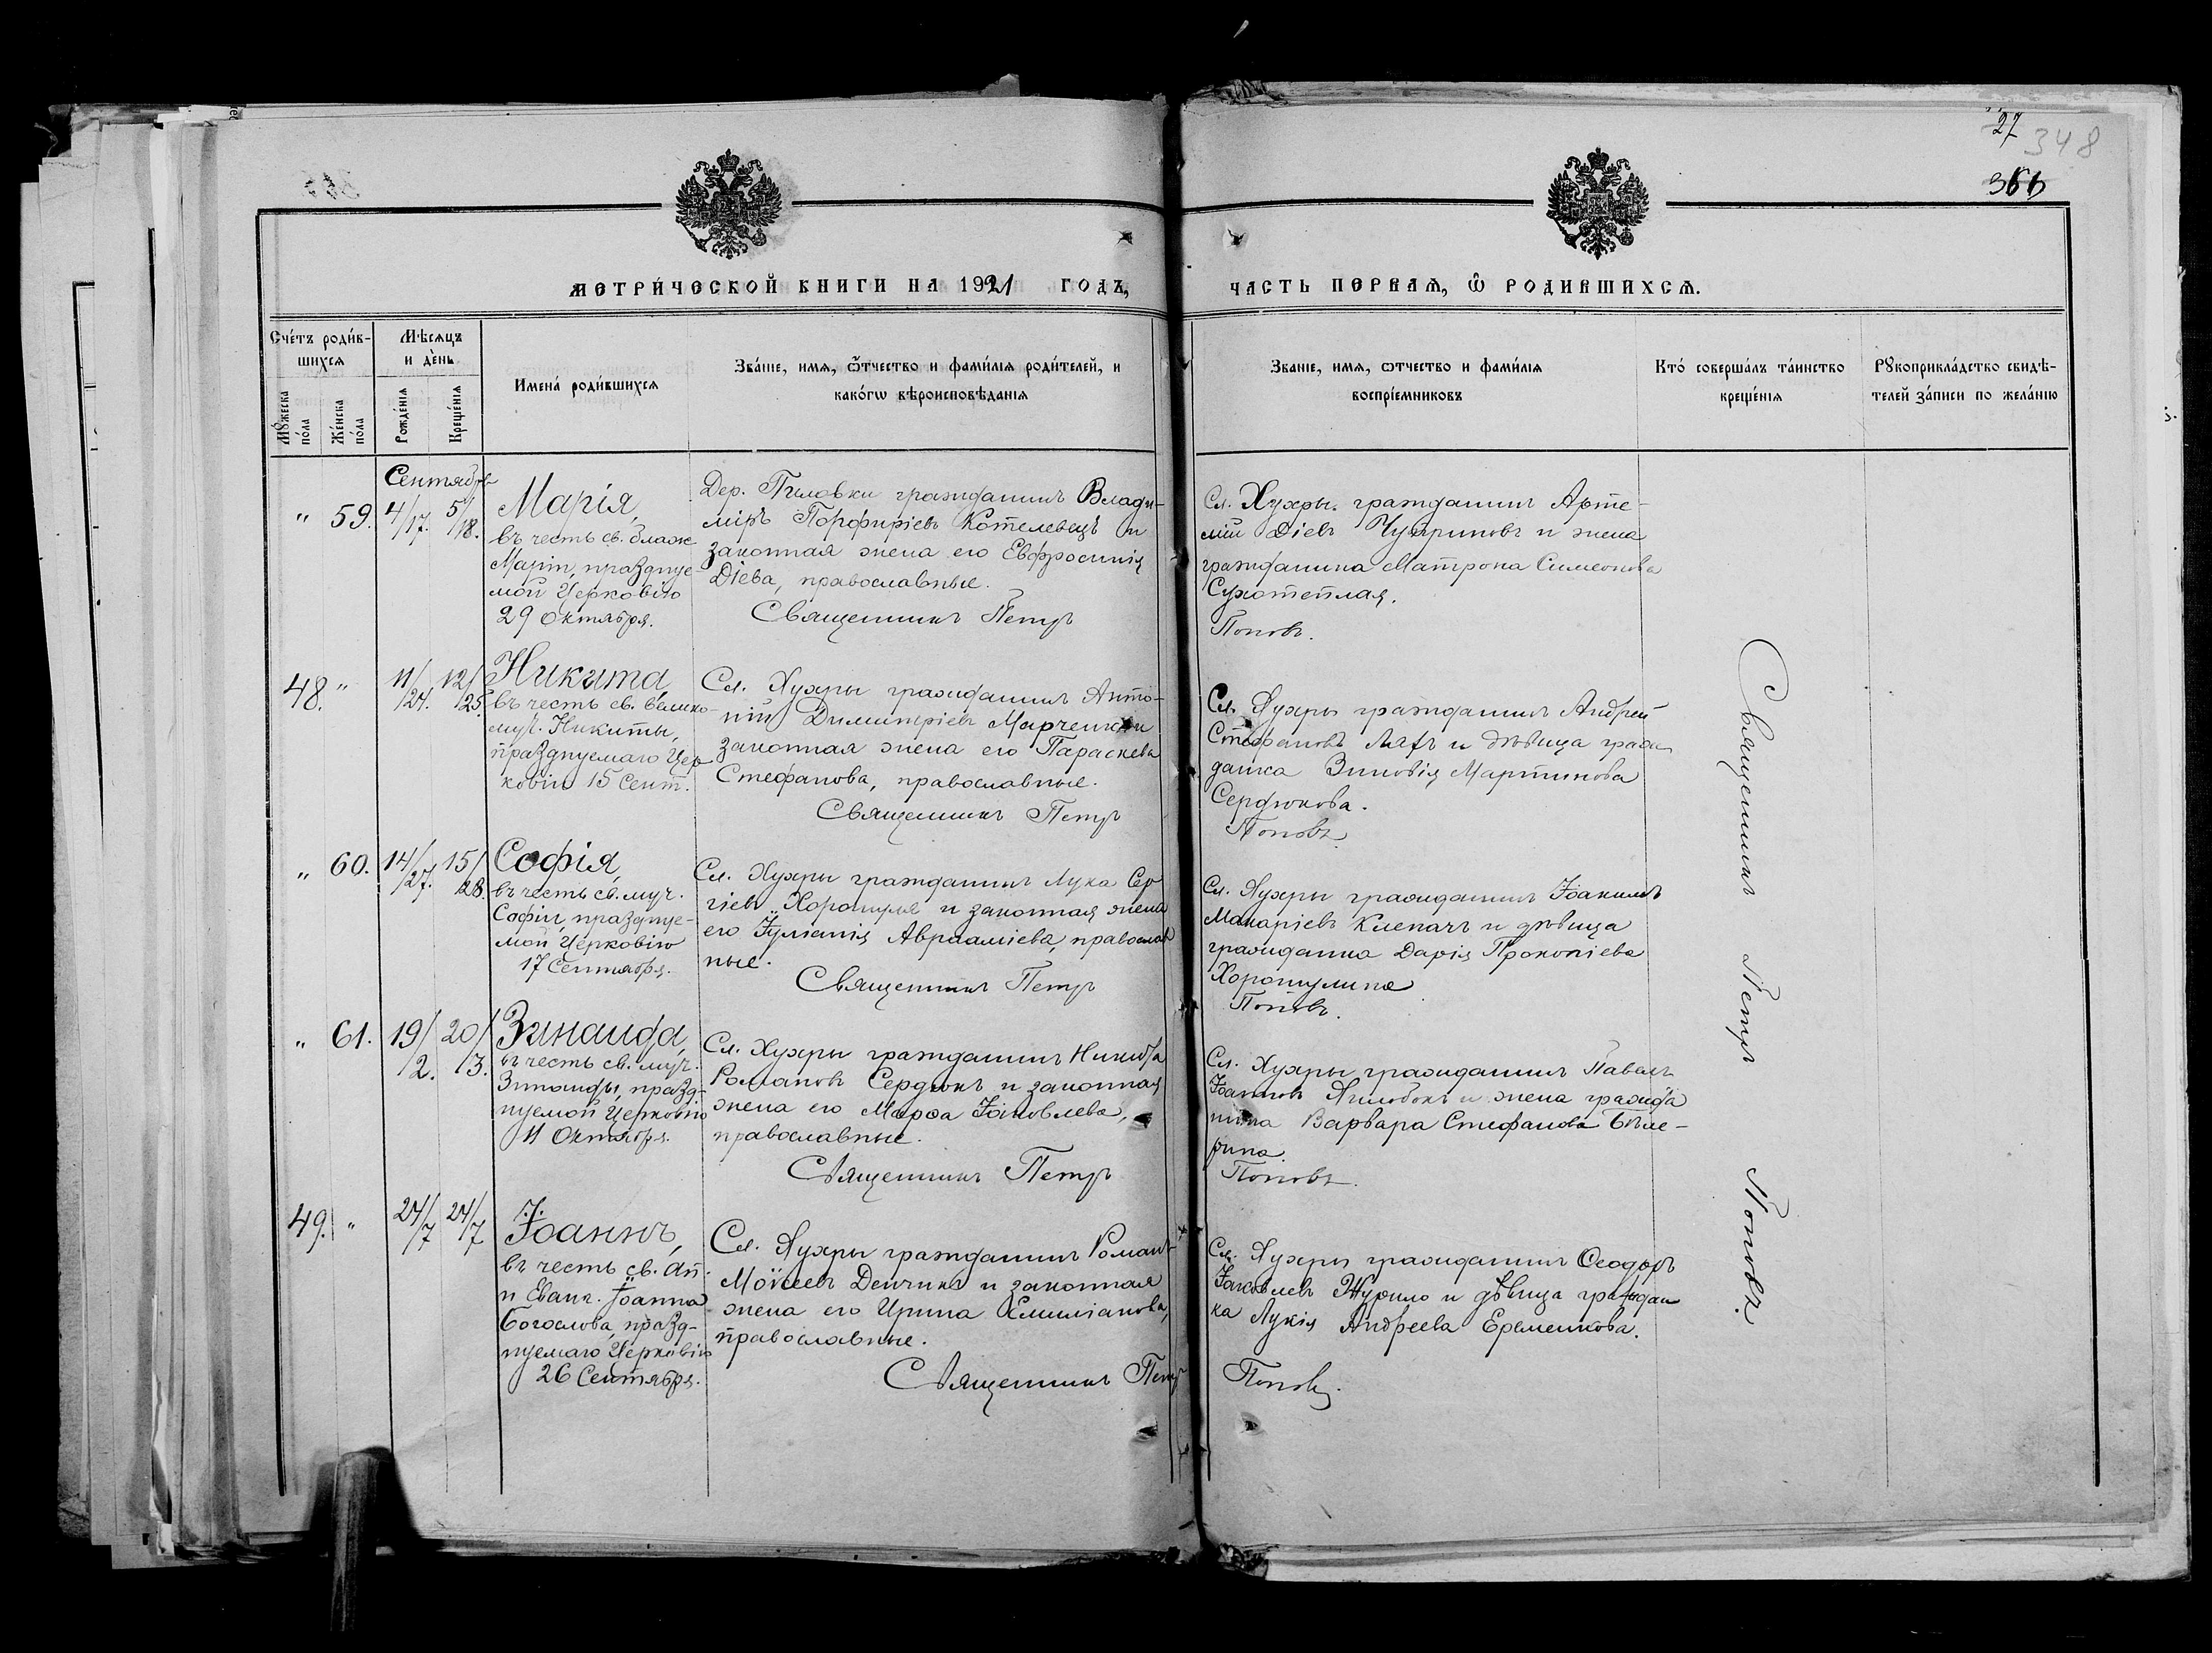 27 348
366
МЕТРИ́ЧЕСКОЙ КНИГИ НА 1921 ГОДЪ,
ЧАСТЬ ПЕРВАѦ, Ѡ҆ РОДИВШИХСѦ.
Сче́тъ роди́в-
шихсѧ
Мꙋ́жеска по́ла
Же́нска по́ла
Мѣ́сѧцъ
и де́нь
Рожде́нїѧ
Креще́нїѧ
Имена̀ роди́вшихсѧ
Зва́нїе, имѧ, ѿтчество и фами́лїѧ роди́телей, и
како́гѡ вѣроисповѣданїѧ
Званїе, имѧ, ѡтчество и фами́лїѧ
воспрїе́мниковъ
Кто́ соверша́лъ та́инство
креще́нїѧ
Рꙋкоприкла́дство свидѣ́-
телей за́писи по жела́нїю
Сентябрь
" 59. 4/17. 5/18.
Марія,
въ честь св. блаж
Маріи, праздnуе-
мой Церковію
29 Октября.
Дер. Пиловки гражданинъ Влади-
міръ Порфиріевъ Котелевецъ и
законная жена его Евфросинія
Діева, православные.
Священникъ Петръ
Сл. Хухры гражданинъ Арте-
мій Діевъ Чуприновъ и жена
гражданина Матрона Симеонова
Сухотеплая.
Поповъ.
48. " 11/24. 12/25.
Никита,
въ честь св. велико-
муч. Никиты,
празднуемаго Цер
ковію 15 Сент.
Сл. Хухры гражданинъ Анто-
ній Димитріевъ Марченко и
законная жена его Параскева
Стефанова, православные.
Священникъ Петръ
Сл. Хухры гражданинъ Андрей
Стефановъ Ляхъ и дѣвица граж
данка Зиновія Мартинова
Сердюкова.
Поповъ.
" 60. 14/27. 15/28.
Софія,
въ честь св. муч.
Софіи, празднуе-
мой Церковію
17 Сентября.
Сл. Хухры гражданинъ Лука Сер
гіевъ Хорошуля и законная жена
его Іуліанія Авраамієва, православ
ные.
Священникъ Петръ
Сл. Хухры гражданинъ Іоакимъ
Макаріевъ Клепачъ и дѣвица
гражданка Дарія Прокопіева
Хорошулина
Поповъ.
" 61. 19/2. 20/3.
Зинаида,
въ честь св. муч.
Зинаиды, празд-
нуемой Церковію
11 Октября.
Сл. Хухры гражданинъ Никита
Романовъ Сердюкъ и законная
жена его Марѳа Іаковлева,
православные.
Священникъ Петръ
Сл. Хухры гражданинъ Павелъ
Іоанновъ и жена гражда
нина Варвара Стефанова Бѣле-
рина.
Поповъ.
49. " 24/7 24/7
Іоаннъ,
въ честь св. Ап.
и Еванг. Іоанна
Богослова, празд-
нуемаго Церковію
26 Сентября.
Сл. Хухры гражданинъ Романъ
Моѵсеевъ Дейчикъ и законная
жена его Ирина Емиліанова,
православные.
Священникъ Петръ
Сл. Хухры гражданинъ Ѳеодоръ
Іаковлевъ Журило и дѣвица граждан
ка Лукія Андреева Еременкова.
Поповъ.
Священникъ Петръ Поповъ.